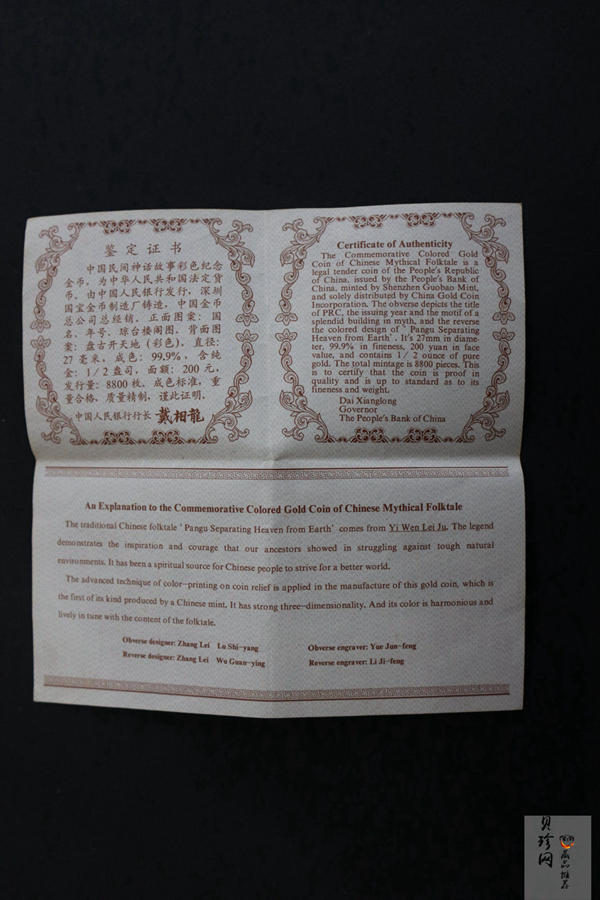 鉴定证书
中国民间神话故事彩色纪念
金币，为中华人民共和国法定货
币。由中国人民银行发行，深圳
国宝金币制造厂铸造，中国金币
总公司总经销。正面图案：国
名、年号、琼台楼阁图，背面图
案：盘古开天地（彩色），直径：
27毫米，成色：99.9%，含纯
金：1/2盎司，面额：200元，
发行量：8800枚。成色标准，重
量合格，质量精制，谨此证明。
中国人民银行行长 戴相龍
Certificate of Authenticity
The Commemorative Colored Gold
Coin of Chinese Mythical Folktale is a
legal tender coin of the People's Republic
of China, issued by the People's Bank of
China, minted by Shenzhen Guobao Mint,
and solely distributed by China Gold Coin
Incorporation. The obverse depicts the title
of PRC, the issuing year and the motif of a
splendid building in myth, and the reverse
the colored design of ' Pangu Separating
Heaven from Earth'. It's 27mm in diame-
ter, 99.9% in fineness, 200 yuan in face
value, and contains 1/2 ounce of pure
gold. The total mintage is 8800 pieces. This
is to certify that the coin is proof in
quality and is up to standard as to its
fineness and weight.
Dai Xianglong
Governor
The People's Bank of China
An Explanation to the Commemorative Colored Gold Coin of Chinese Mythical Folktale
The traditional Chinese folktale ' Pangu Separating Heaven from Earth' comes from Yi Wen Lei Ju. The legend
demonstrates the inspiration and courage that our ancestors showed in struggling against tough natural
environments. It has been a spiritual source for Chinese people to strive for a better world.
The advanced technique of color-printing on coin relief is applied in the manufacture of this gold coin, which is
the first of its kind produced by a Chinese mint. It has strong three-dimensionality. And its color is harmonious and
lively in tune with the content of the folktale.
Obverse designer: Zhang Lei Lu Shi-yang
Reverse designer: Zhang Lei Wu Guan-ying
Obverse engraver: Yue Jun-feng
Reverse engraver: Li Ji-feng
贝珍网
藏品推荐